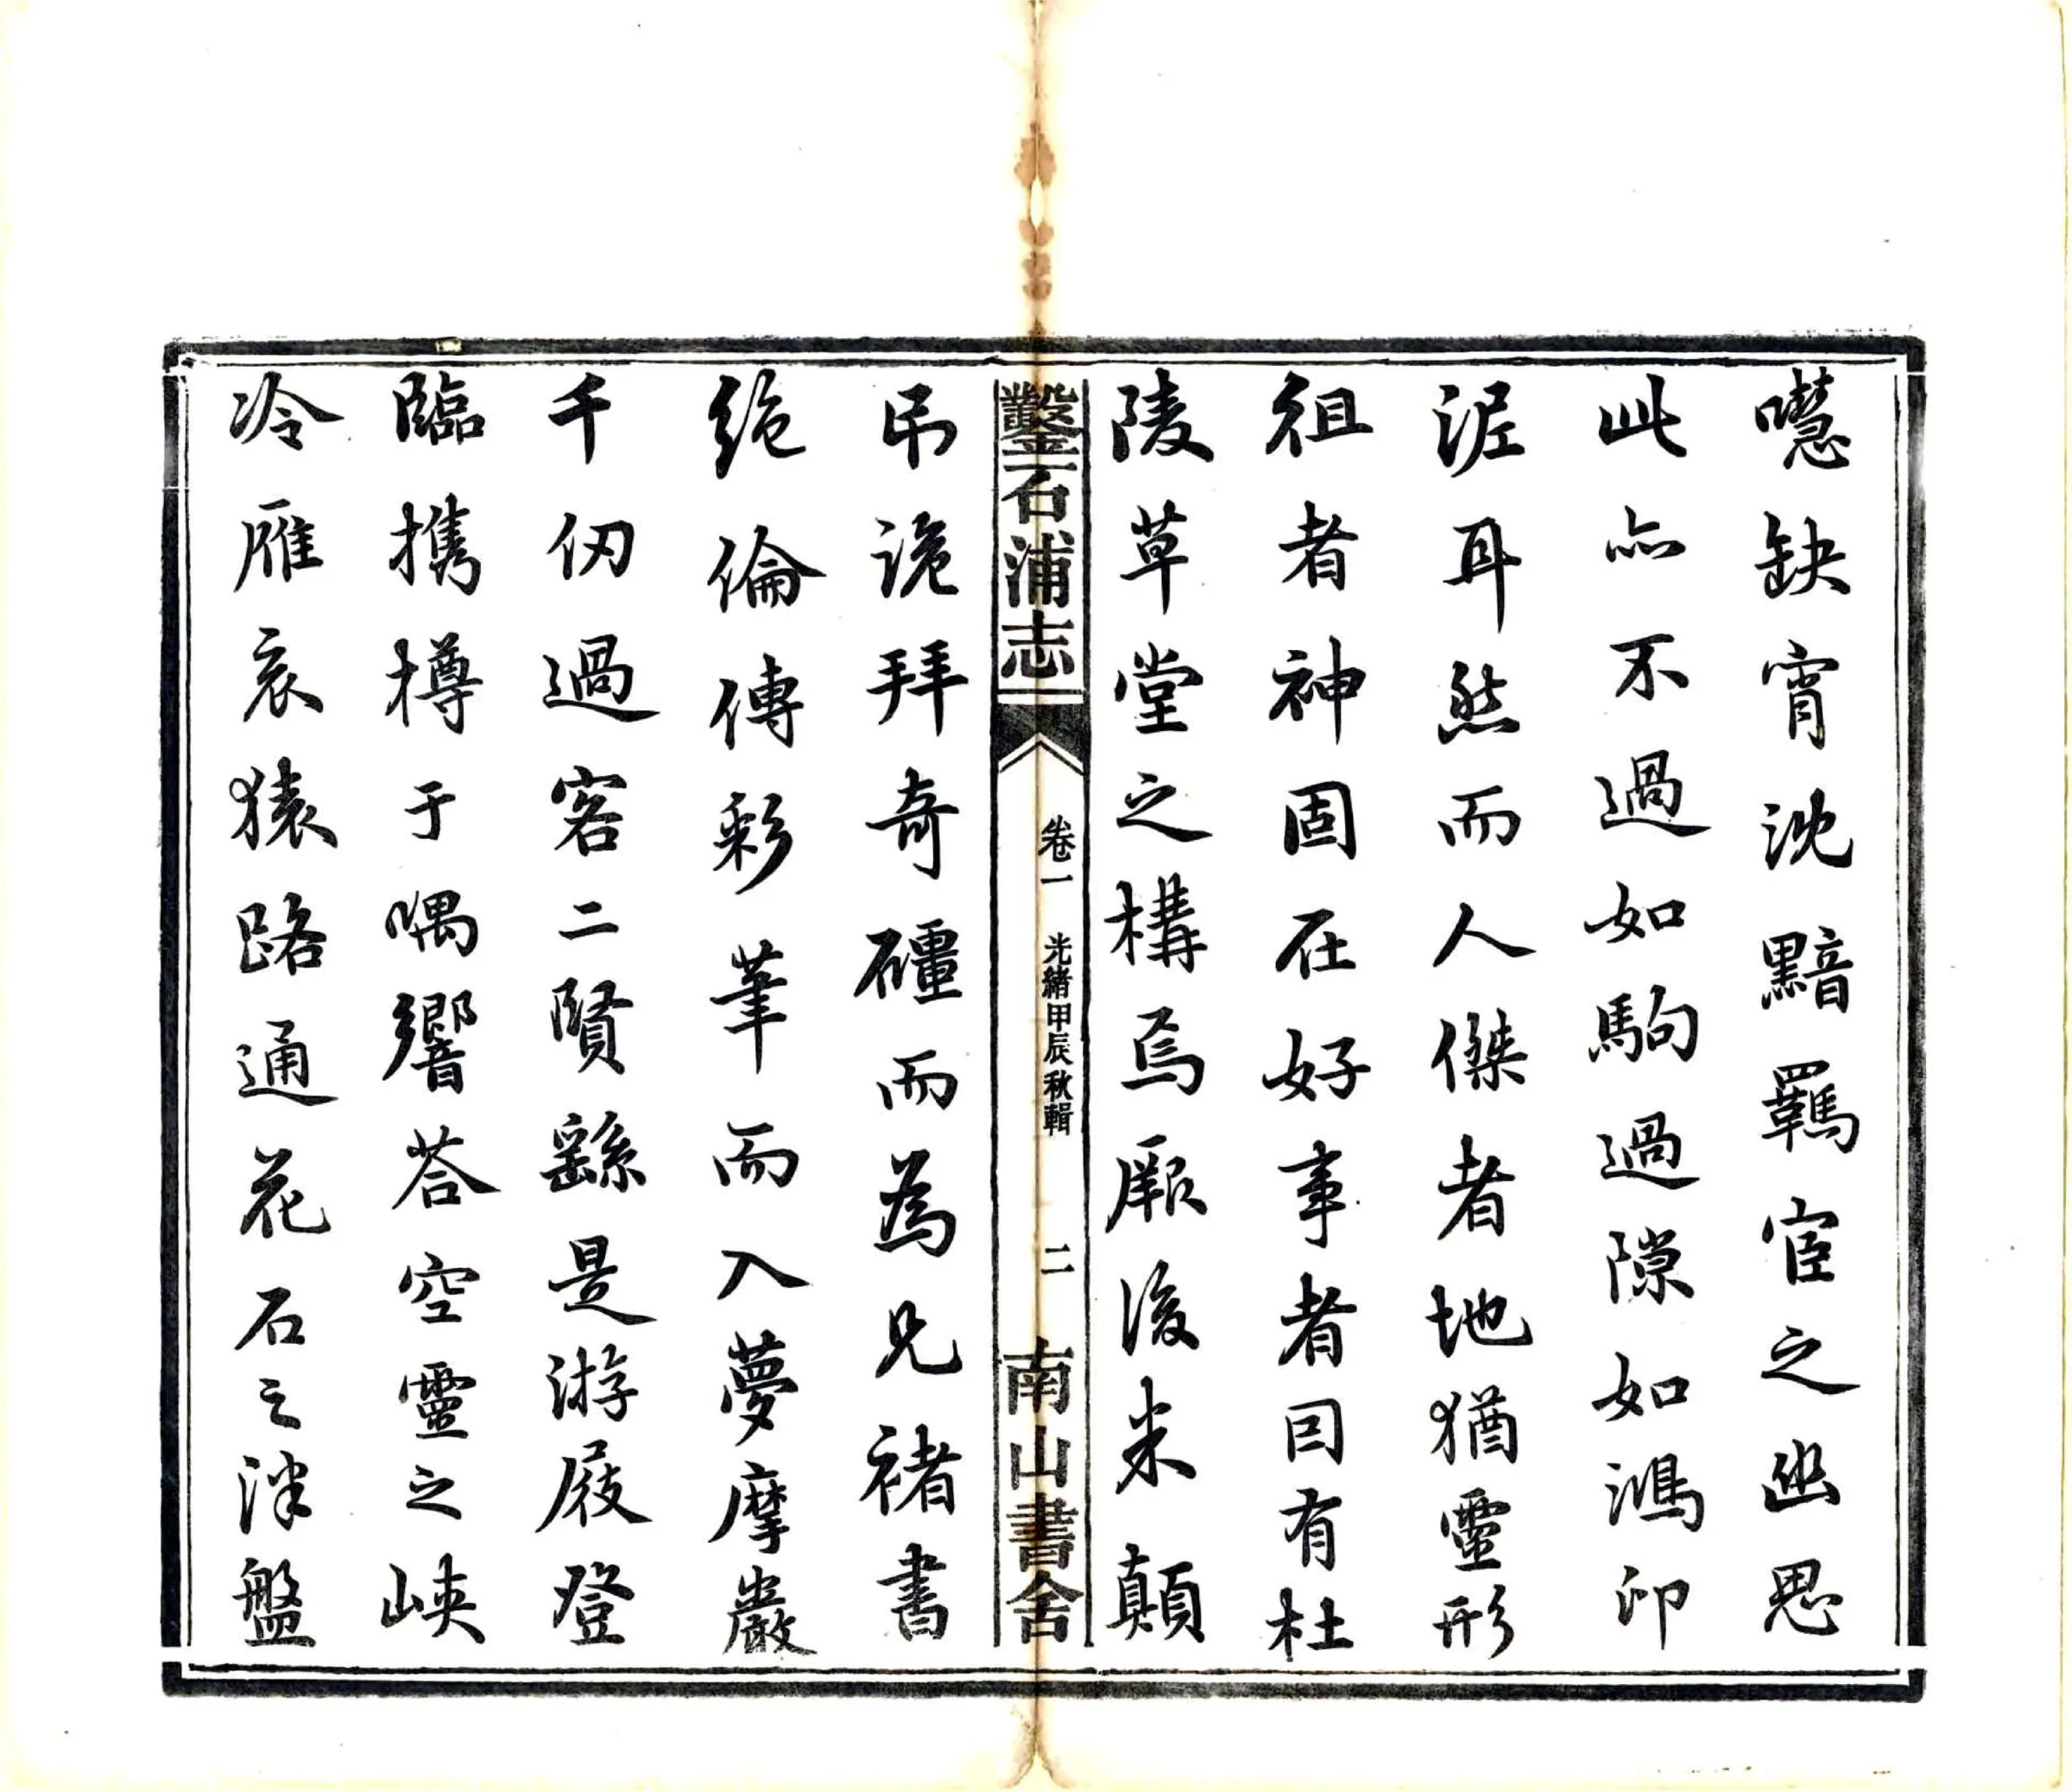 嚖缺宵沈黯羈宦之幽思
此亦不過如駒過隙如鴻印
泥耳然而人傑者地猶靈形
徂者神固在好事者因有杜
陵草堂之構焉厥後米顛
鑿石浦志
卷一 光緒甲辰秋輯 二
南山書舍
弔詭拜奇礓而為兄褚書
絕倫傳彩筆而入夢摩巖
千仞過客二賢繇是游屐登
臨攜樽于喁響荅空靈之峽
冷雁哀猿路通花石之洋盤